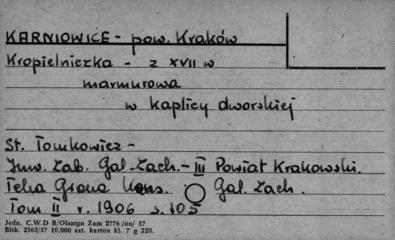 KARNIOWICE - pow. Kraków
Kropielniczka - z XVII w
marmurowa
w kaplicy dworskiej
St. Tomkowicz -
Inw. Zab. Gal. Zach. - III Powiat Krakowski.
Teka Grona Kons. Gal. Zach.
Tom II r. 1906 s. 105
Jedn. C.W.D B/Olsztyn Zam 2776 /on/ 57
Błtk. 2563/57 10.000 szt. karton kl. 7 g 220.